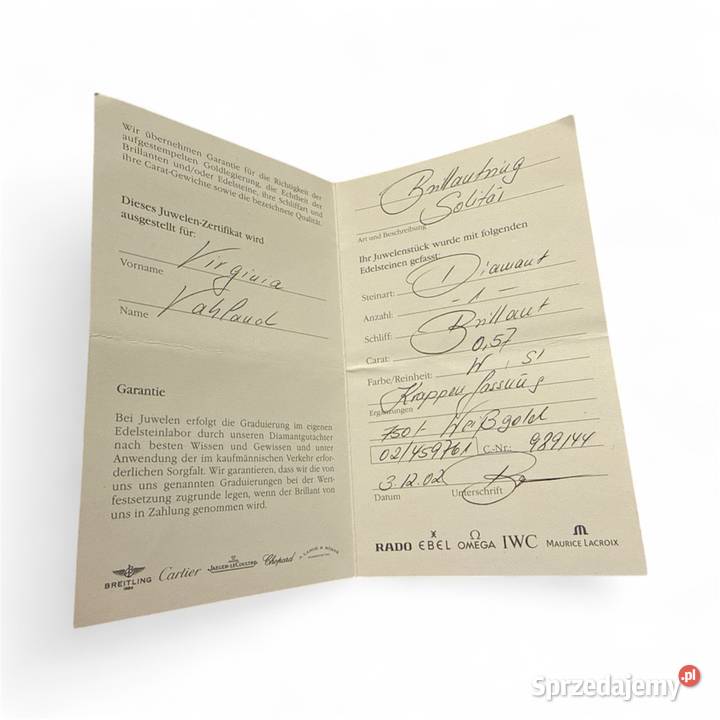 Wir übernehmen Garantie für die Richtigkeit der
aufgestempelten Goldlegierung, die Echtheit der
Brillanten und/oder Edelsteine, ihre Schliffart und
ihre Carat-Gewichte sowie die bezeichnete Qualität.
Dieses Juwelen-Zertifikat wird
ausgestellt für:
Virginia
Vorname
Vahland
Name
Garantie
Bei Juwelen erfolgt die Graduierung im eigenen
Edelsteinlabor durch unseren Diamantgutachter
nach besten Wissen und Gewissen und unter
Anwendung der im kaufmännischen Verkehr erfor-
derlichen Sorgfalt. Wir garantieren, dass wir die von
uns uns genannten Graduierungen bei der Wert-
festsetzung zugrunde legen, wenn der Brillant von
uns in Zahlung genommen wird.
BREITLING
1884
Cartier
JAEGER-LECOULTRE
Chopard
A. LANGE & SÖHNE
Brillantring
Solitär
Art und Beschreibung
Ihr Juwelenstück wurde mit folgenden
Edelsteinen gefasst:
Steinart: 1 Diamant
Anzahl: -1-
Schliff: Brillant
Carat: 0,57
Farbe/Reinheit: W, SI
Krappenfassung
Ergänzungen
750/- Weißgold
02/459761 C-Nr.: 989144
3.12.02
Datum Unterschrift
RADO EBEL OMEGA IWC MAURICE LACROIX
Sprzedajemy.pl